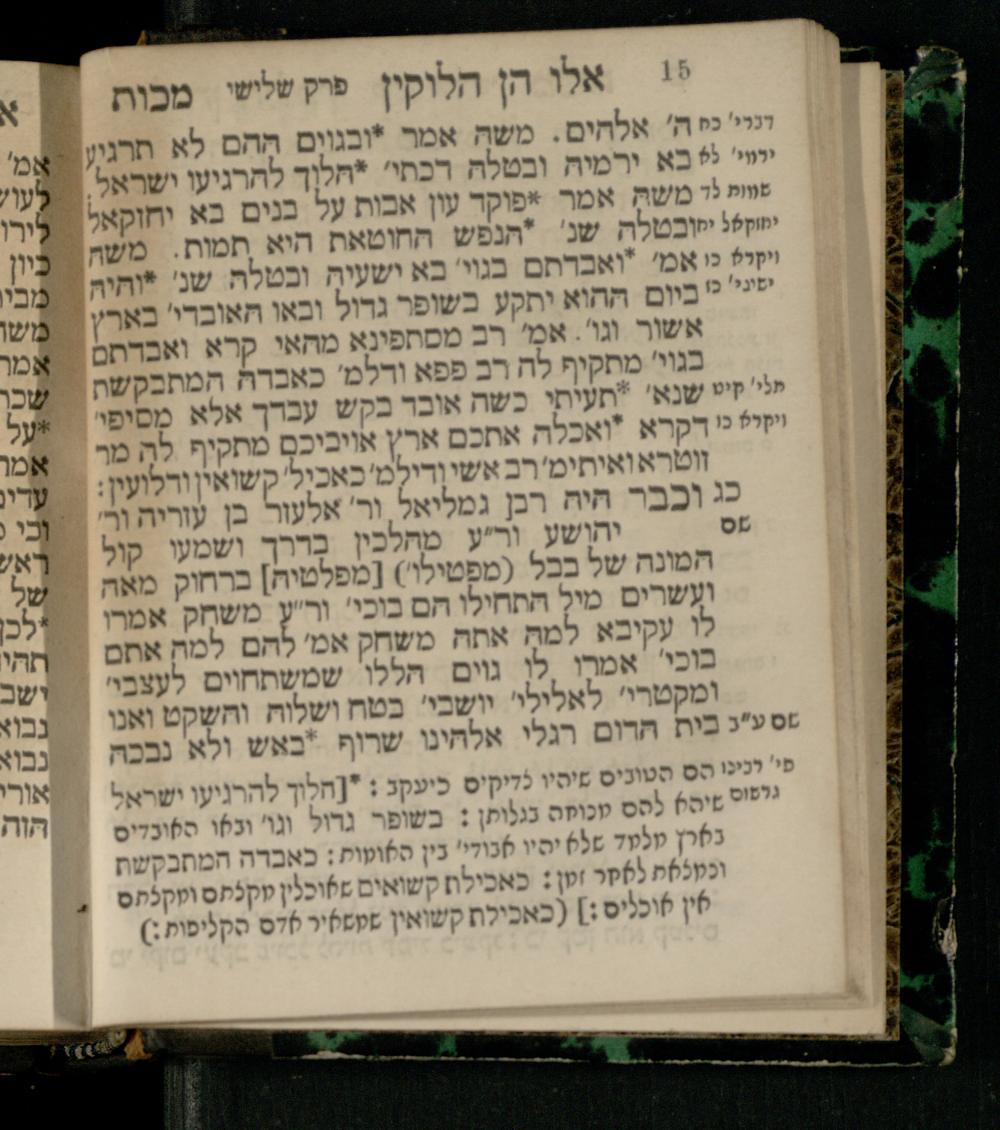 15 אלו הן הלוקין פרק שלישי מכות
דברי' כח ה' אלהים. משה אמר *ובגוים ההם לא תרגיע
ירמי' לא בא ירמיה ובטלה דכתי' *הלוך להרגיעו ישראל
שמות לד משה אמר *פוקד עון אבות על בנים בא יחזקאל
יחזקאל יח ובטלה שנ' *הנפש החוטאת היא תמות. משה
ויקרא כו אמ' *ואבדתם בגוי' בא ישעיה ובטלה שנ' *והיה
ישעי' כז ביום ההוא יתקע בשופר גדול ובאו האובדי' בארץ
אשור וגו'. אמ' רב מסתפינא מהאי קרא ואבדתם
בגוי' מתקיף לה רב פפא ודלמ' כאבדה המתבקשת
תלי' קיט שנא' *תעיתי כשה אובד בקש עבדך אלא מסיפי'
ויקרא כו דקרא *ואכלה אתכם ארץ אויביכם מתקיף לה מר
זוטרא ואיתימ' רב אשי ודילמ' כאכיל' קשואין ודלועין:
כג וכבר היה רבן גמליאל ור' אלעזר בן עזריה ור'
שם יהושע ור"ע מהלכין בדרך ושמעו קול
המונה של בבל (מפטילו') [מפלטיה] ברחוק מאה
ועשרים מיל התחילו הם בוכי' ור"ע משחק אמרו
לו עקיבא למה אתה משחק אמ' להם למה אתם
בוכי' אמרו לו גוים הללו שמשתחוים לעצבי'
ומקטרי' לאלילי' יושבי' בטח ושלוה והשקט ואנו
שם ע"ב בית הדום רגלי אלהינו שרוף *באש ולא נבכה
פי' רבינו הם הטובים שיהיו צדיקים כיעקב: *[הלוך להרגיעו ישראל
גרשום שיהא להם מנוחה בגלותן: בשופר גדול וגו' ובאו האובדים
בארץ מלמד שלא יהיו אבודי' בין האומות: כאבדה המתבקשת
ונמצאת לאחר זמן: כאכילת קשואים שאוכלין מקצתם ומקצתם
אין אוכלים:] (כאכילת קשואין שמשאיר אדם הקליפות:)
א
אמ'
לעוש
לירו
כיון
מבי
משה
אמר
שכר
*על
אמר
עדים
וכי
ראש
של
*לכן
תהי
ישב
נבוא
נבוא
אורי
הוה